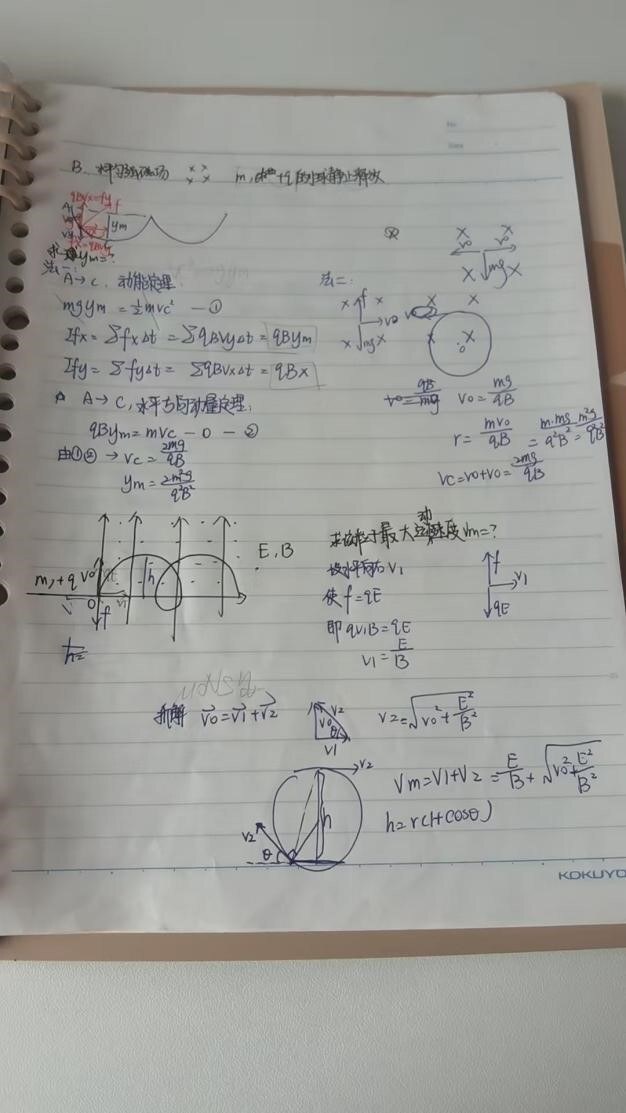 No
Date
B. 水平匀强磁场 ×× ×× m, 电荷+q的小球静止释放
qBvx=fy
f
A
ym
求ym=?
法一:
A→C, 动能定理
mgym = ½mvc² —①
Ifx = Σfx△t = ΣqBvy△t = qBym
Ify = Σfy△t = Σ qBvx△t = qBx
A→C, 水平方向动量定理:
qBym = mvc - 0 —②
由①② → vc = 2mg/qB
ym = 2m²g/q²B²
法二:
× ×
f
v0
mg
v0 v0
mg
0
v0 = mg/qB
r = mv0/qB = m·mg/q²B² = m²g/q²B²
vc = v0+v0 = 2mg/qB
E, B
m, +q v0
h
0
f
v1
h=
求 最大动 速度vm=?
设水平向右v1
使 f=qE
即 qv1B=qE
v1 = E/B
f
v1
qE
拆解 v0 = v1 + v2
v2
v0
θ
v1
v2 = √(v0² + E²/B²)
v2
h
v2
θ
vm = v1+v2 = E/B + √(v0² + E²/B²)
h = r(1+cosθ)
KOKUYO